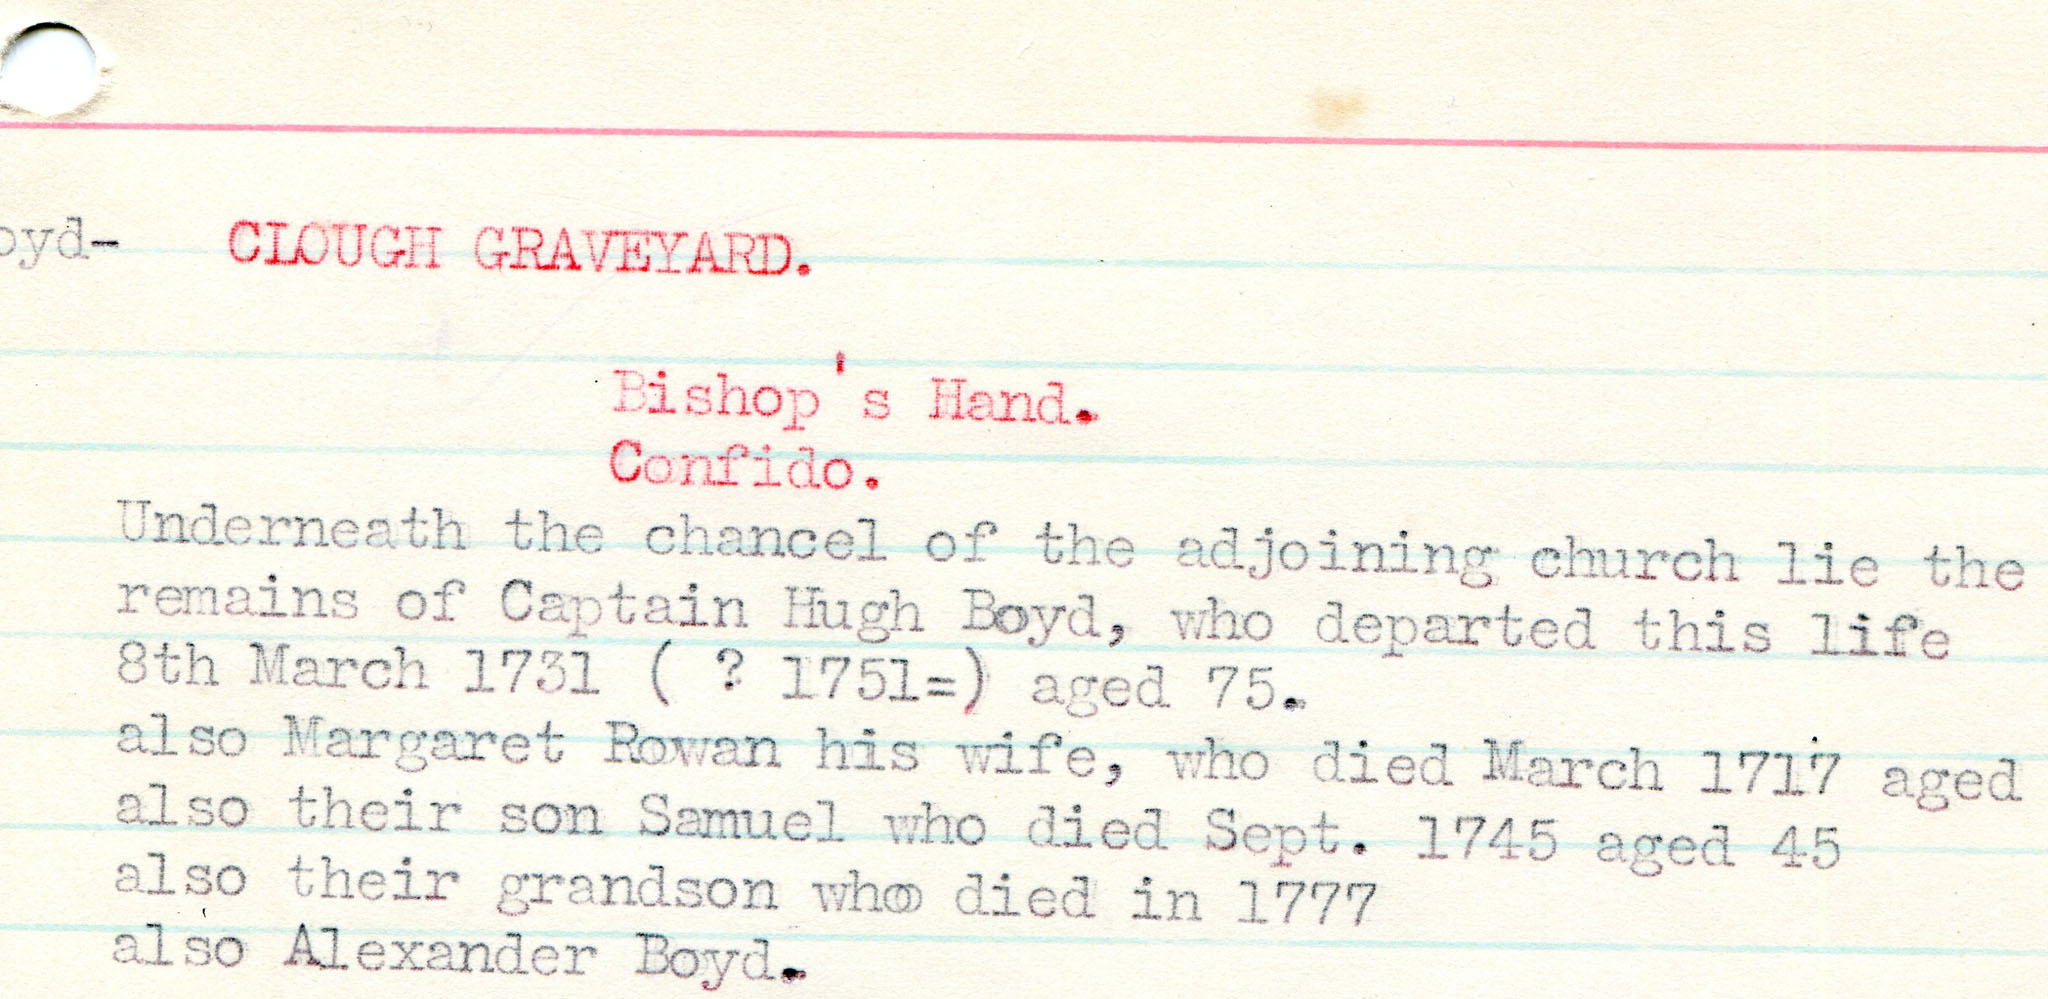 oyd- CLOUGH GRAVEYARD.
Bishop's Hand.
Confido.
Underneath the chancel of the adjoining church lie the
remains of Captain Hugh Boyd, who departed this life
8th March 1731 ( ? 1751=) aged 75.
also Margaret Rowan his wife, who died March 1717 aged
also their son Samuel who died Sept. 1745 aged 45
also their grandson who died in 1777
also Alexander Boyd.